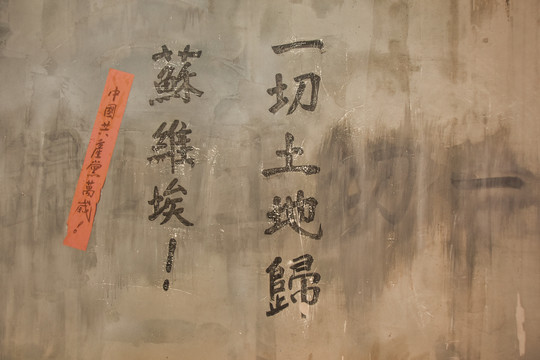 一切土地歸
蘇維埃！
中國共產黨萬歲！